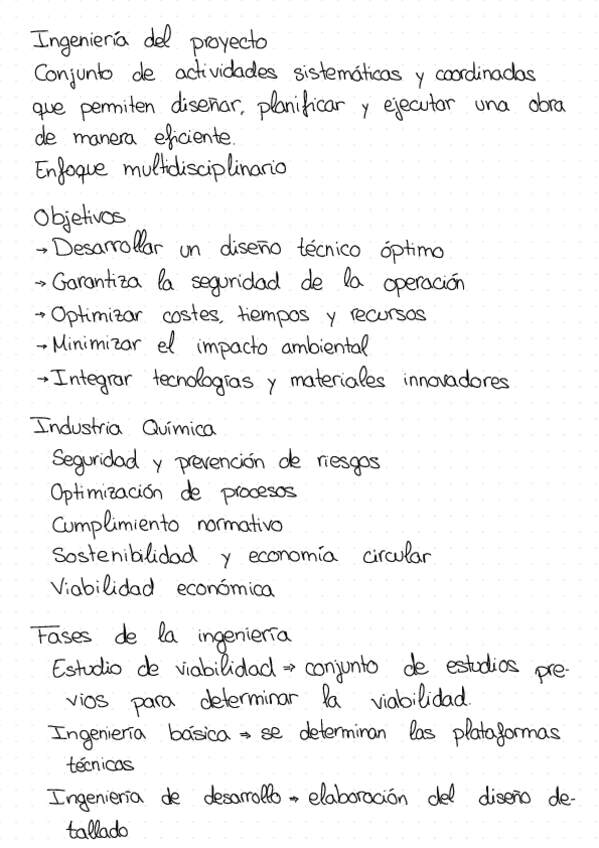 Ingeniería del proyecto
Conjunto de actividades sistemáticas y coordinadas
que permiten diseñar, planificar y ejecutar una obra
de manera eficiente.
Enfoque multidisciplinario
Objetivos
→ Desarrollar un diseño técnico óptimo
→ Garantiza la seguridad de la operación
→ Optimizar costes, tiempos y recursos
→ Minimizar el impacto ambiental
→ Integrar tecnologías y materiales innovadores
Industria Química
Seguridad y prevención de riesgos
Optimización de procesos
Cumplimiento normativo
Sostenibilidad y economía circular
Viabilidad económica
Fases de la ingeniería
Estudio de viabilidad → conjunto de estudios pre-
vios para determinar la viabilidad.
Ingeniería básica → se determinan las plataformas
técnicas
Ingeniería de desarrollo → elaboración del diseño de-
tallado